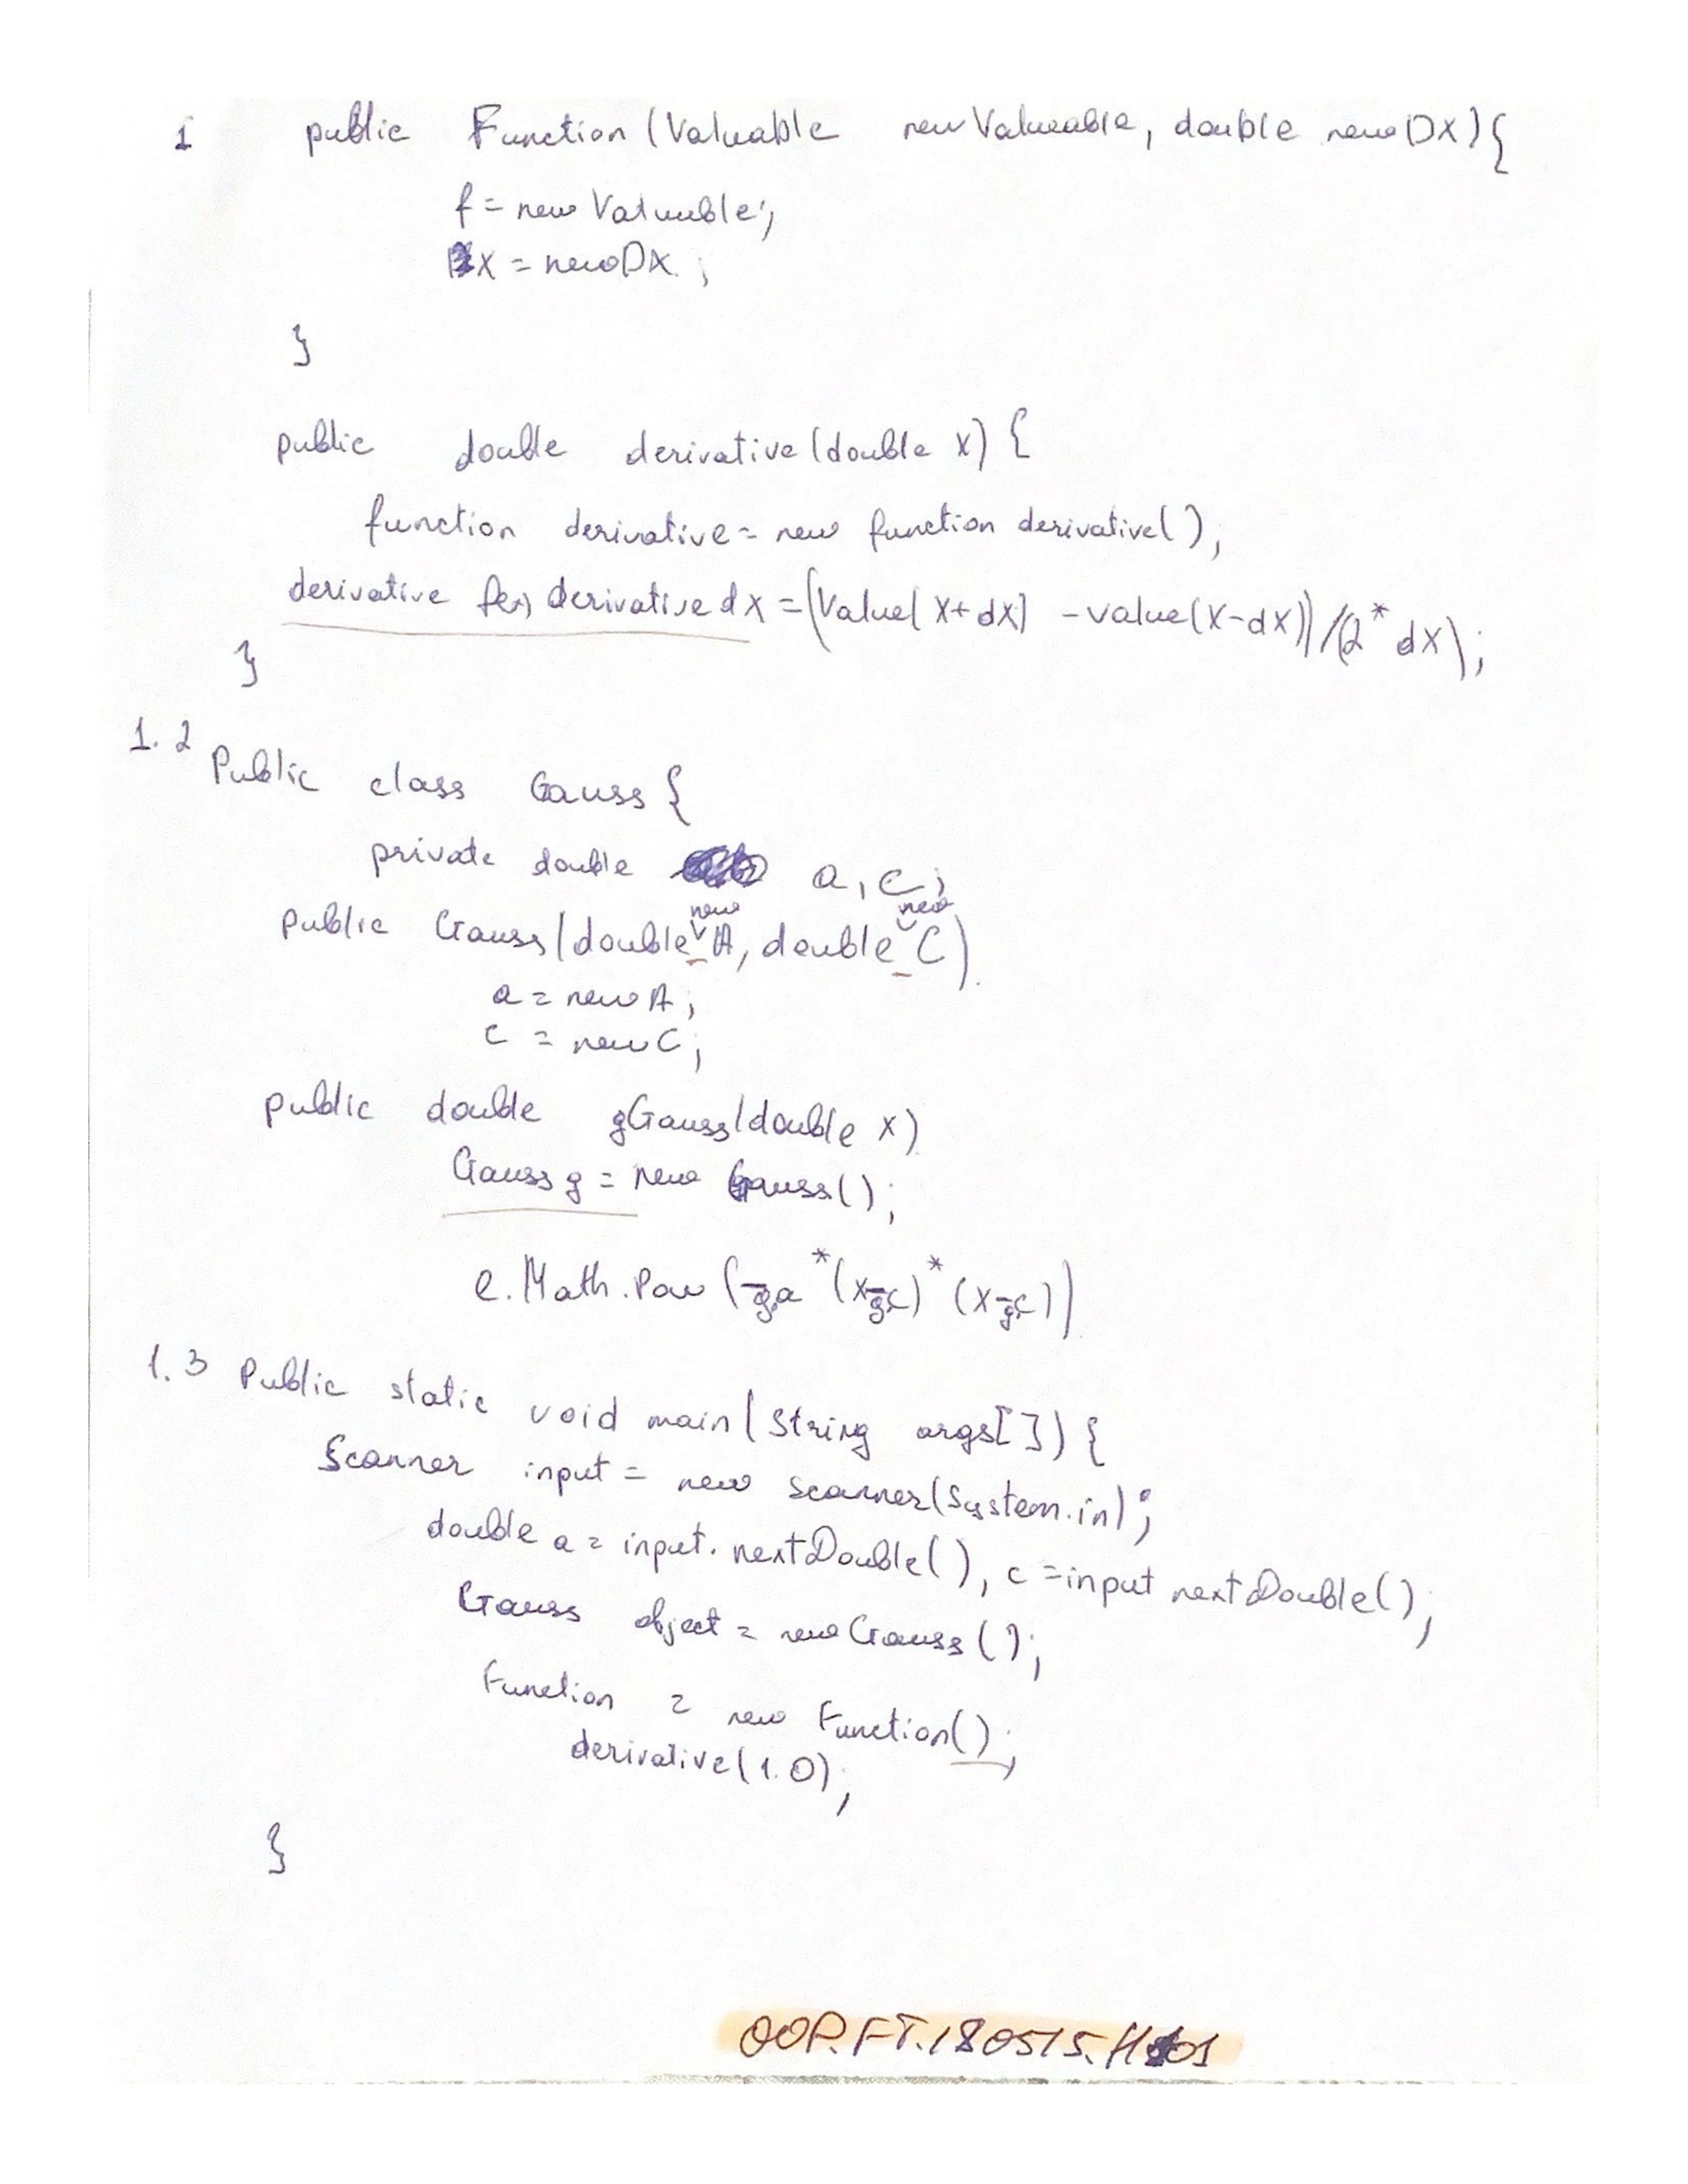 1 public Function (Valuable newValueable, double newDX){
f = new Valuuble;
X = newDX ;
}
public double derivative(double x) {
function derivative = new function derivative();
derivative f(x) derivative dx = (Value(x+dx) - value(x-dx))/(2*dx);
}
1.2
Public class Gauss {
private double a, c;
Public Gauss(double newA, double newC)
a = newA;
c = newC;
public double gGauss(double x)
Gauss g = new Gauss();
e.Math.Pow (-g.a*(x-g.c)*(x-g.c))
1.3 Public static void main(String args[]) {
Scanner input = new Scanner(System.in);
double a = input.nextDouble(), c = input nextDouble();
Gauss object = new Gauss();
Function = new Function();
derivative(1.0);
}
OOP.FT.180515.H01